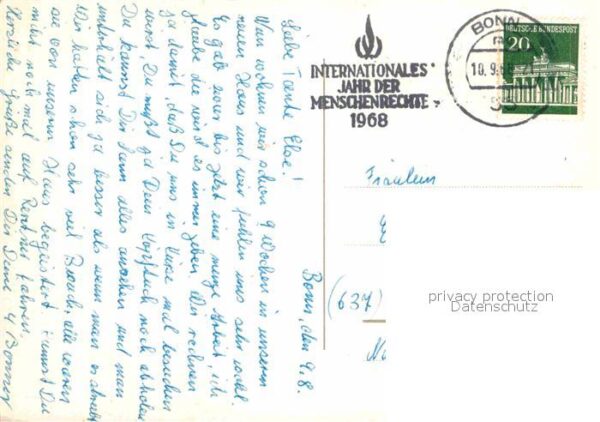 Bonn, den 9.8.
Liebe Tante Else!
Nun wohnen wir schon 9 Wochen in unserem
neuen Haus und wir fühlen uns sehr wohl.
Es gab zwar bis jetzt eine menge Arbeit, ich
glaube die wird es immer geben. Wir rechnen
ja damit, daß Du uns in Kürze mal besuchen
wirst. Du mußt ja Dein Kopftuch noch abholen.
Du kannst Dir dann alles ansehen und man
unterhält sich ja besser als wenn man es schreibt.
Wir hatten schon sehr viel Besuch, alle waren
die von unserem Haus begeistert.
nicht noch mal auf Rentner fahren.
Herzliche Grüße senden Dir Deine 4 Bonner
INTERNATIONALES
JAHR DER
MENSCHENRECHTE
1968
BONN
10.9.6
DEUTSCHE BUNDESPOST
20
Fräulein
(637)
privacy protection
Datenschutz